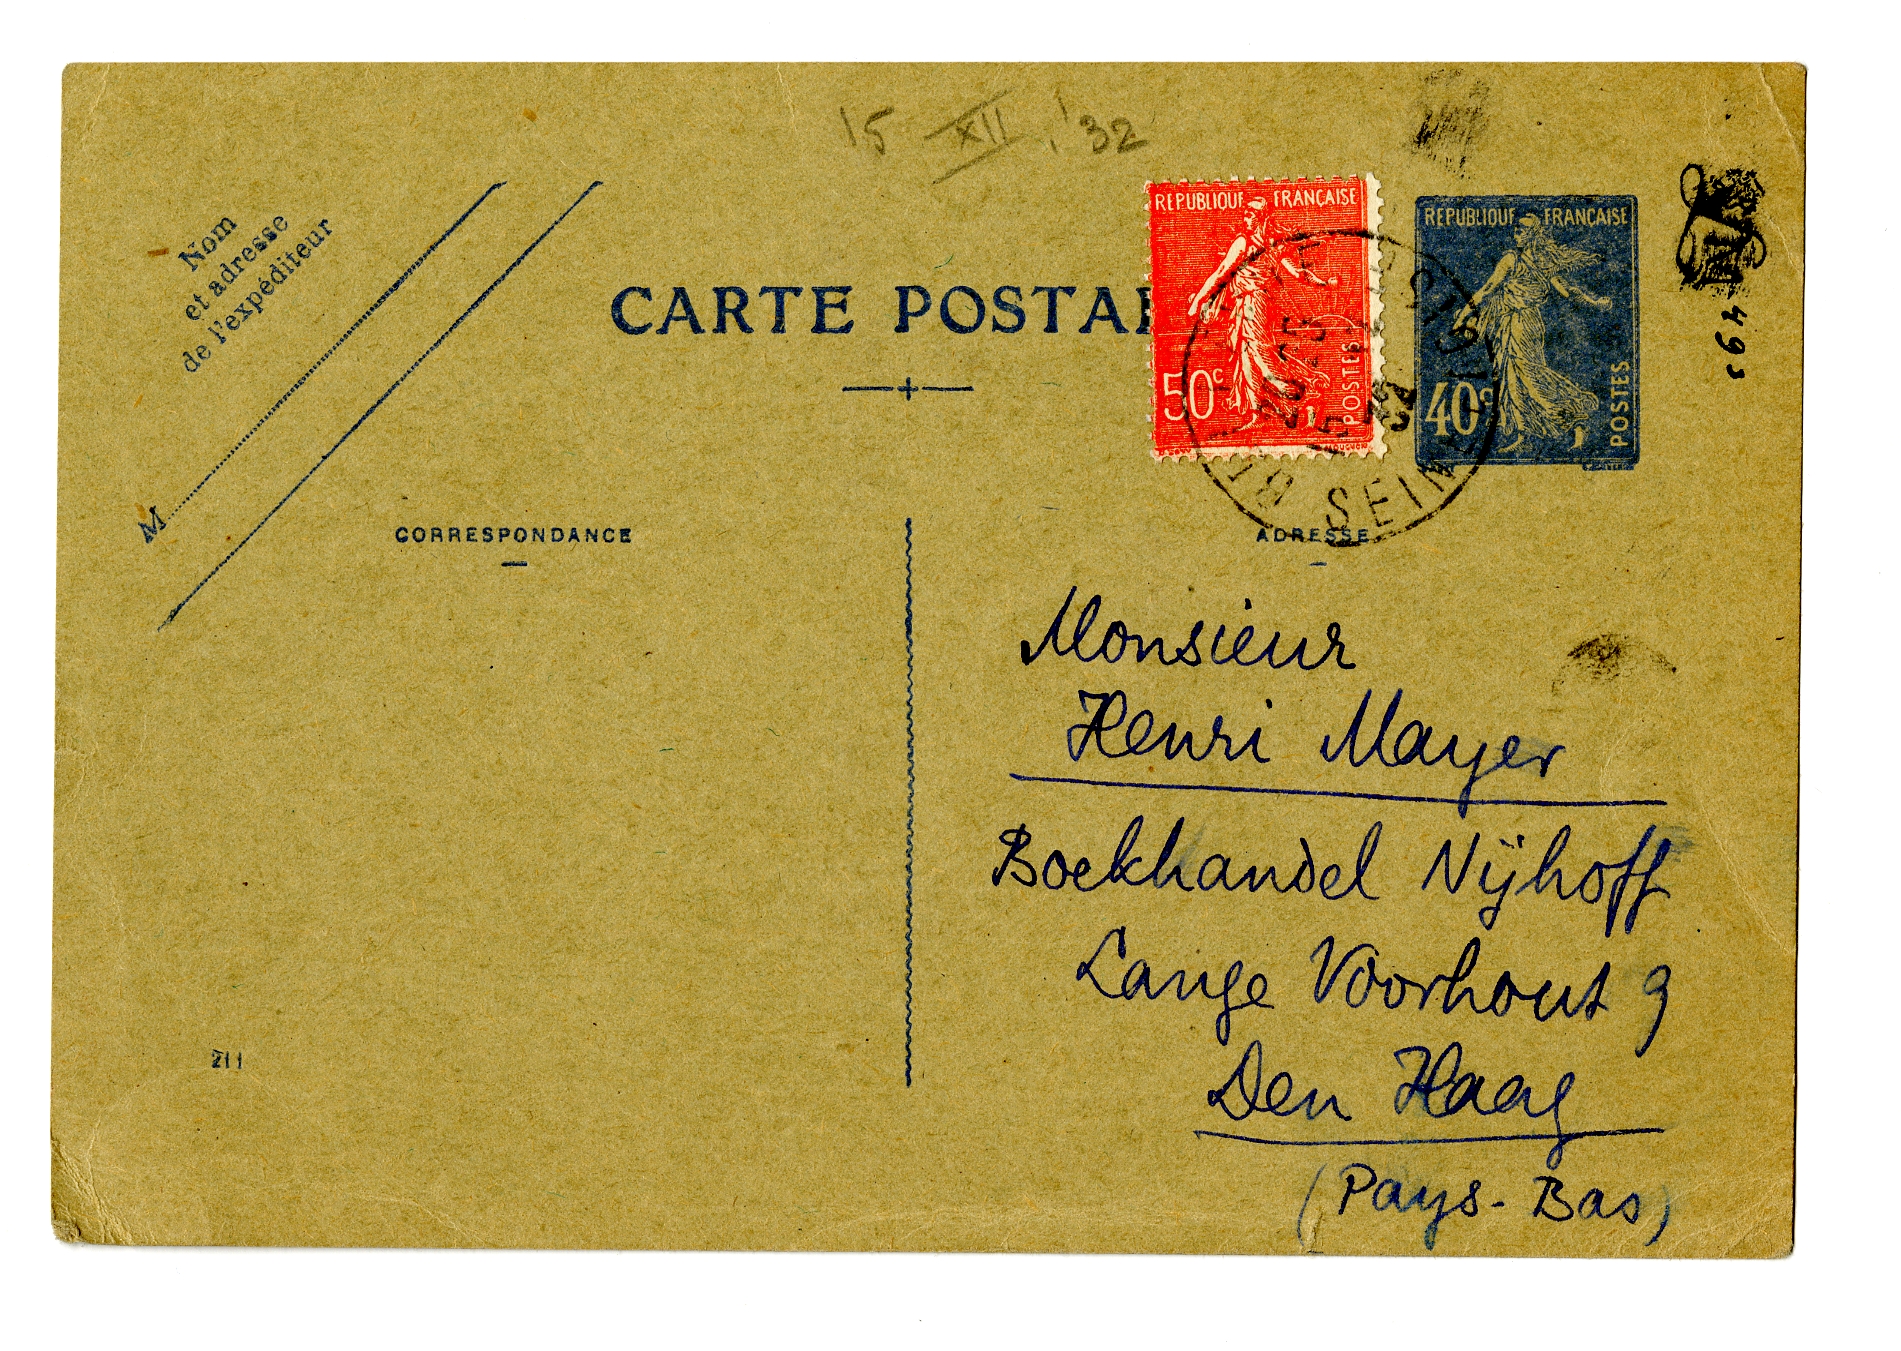 15 XII '32
Nom
et adresse
de l'expéditeur
M
CARTE POSTA
REPUBLIQUE FRANÇAISE
50c
POSTES
REPUBLIQUE FRANÇAISE
40c
POSTES
20 25
15
32
SEINE
493
CORRESPONDANCE
ADRESSE
Monsieur
Henri Mayer
Boekhandel Nijhoff
Lange Voorhout 9
Den Haag
(Pays-Bas)
211